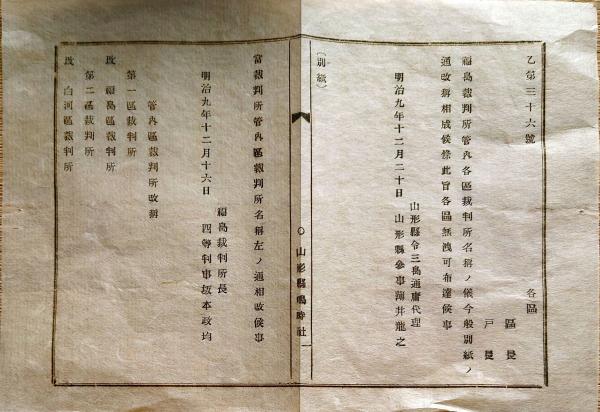 乙第三十六號
各區
區長
戸長
福島裁判所管內各區裁判所名稱ノ儀今般別紙ノ
通改稱相成候條此旨各區無洩可布達候事
山形縣令三島通庸代理
明治九年十二月二十日　山形縣參事薄井龍之
○山形縣鳴時社
一
(別紙)
當裁判所管內區裁判所名稱左ノ通相改候事
福島裁判所長
明治九年十二月十六日　四等判事坂本政均
管內區裁判所改稱
第一區裁判所
改　福島區裁判所
第二區裁判所
改　白河區裁判所